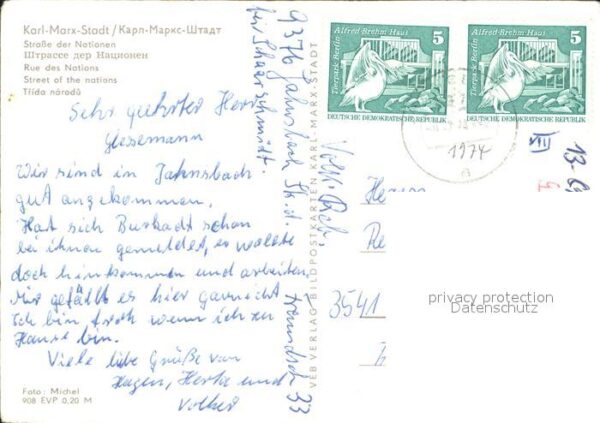 Karl-Marx-Stadt / Карл-Маркс-Штадт
Straße der Nationen
Штрассе дер Национен
Rue des Nations
Street of the nations
Třída národů
Sehr geehrter Herr
Wir sind in Jahnsbach
gut angekommen.
Hat sich Burkadt schon
bei ihnen gemeldet, es wollte
doch hinkommen und arbeiten,
Mir gefällt es hier garnicht
Ich bin froh wenn ich zu
Hause bin.
Viele liebe Grüße von
Hagen, und
Volker
Foto: Michel
908 EVP 0.20 M
9376 Jahnsbach
bei Scharschmidt.
33
VEB VERLAG BILDPOSTKARTEN KARL-MARX-STADT
Alfred-Brehm-Haus 5
Tierpark Berlin
DEUTSCHE DEMOKRATISCHE REPUBLIK
Alfred-Brehm-Haus 5
Tierpark Berlin
DEUTSCHE DEMOKRATISCHE REPUBLIK
1974
a
VII
3541
privacy protection
Datenschutz